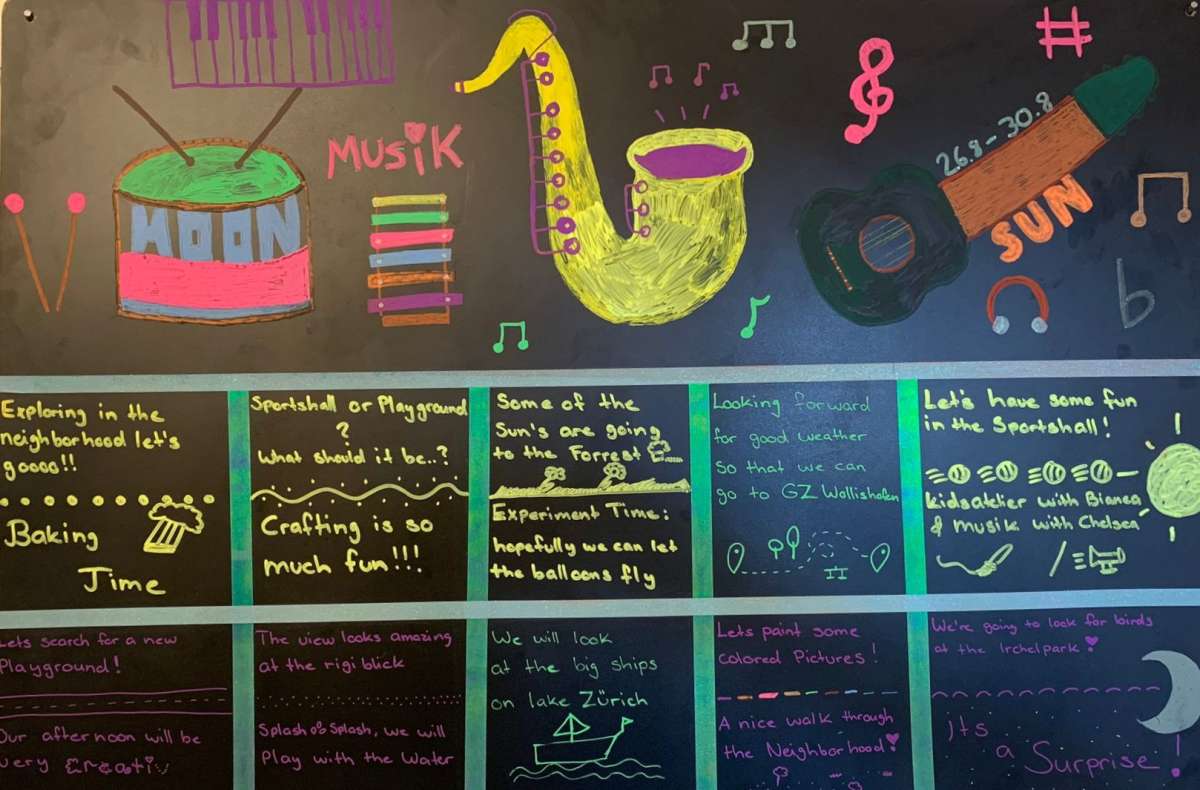 MOON
MUSiK
26.8 - 30.8
SUN
Exploring in the
neighborhood let's
goooo!!
Baking
Time
Sportshall or Playground
?
What should it be..?
Crafting is so
much fun!!!
Some of the
Sun's are going
to the Forrest
Experiment Time:
hopefully we can let
the balloons fly
Looking forward
for good weather
so that we can
go to GZ Wollishofen
Let's have some fun
in the Sportshall!
kidsatelier with Bianca
& musik with Chelsea
Lets search for a new
Playground!
Our afternoon will be
very
The view looks amazing
at the rigiblick
Splash Splash, we will
Play with the Water
We will look
at the big ships
on lake Zürich
Lets paint some
colored Pictures!
A nice walk through
the Neighborhood!
We're going to look for birds
at the Irchelpark!
Its
a Surprise!